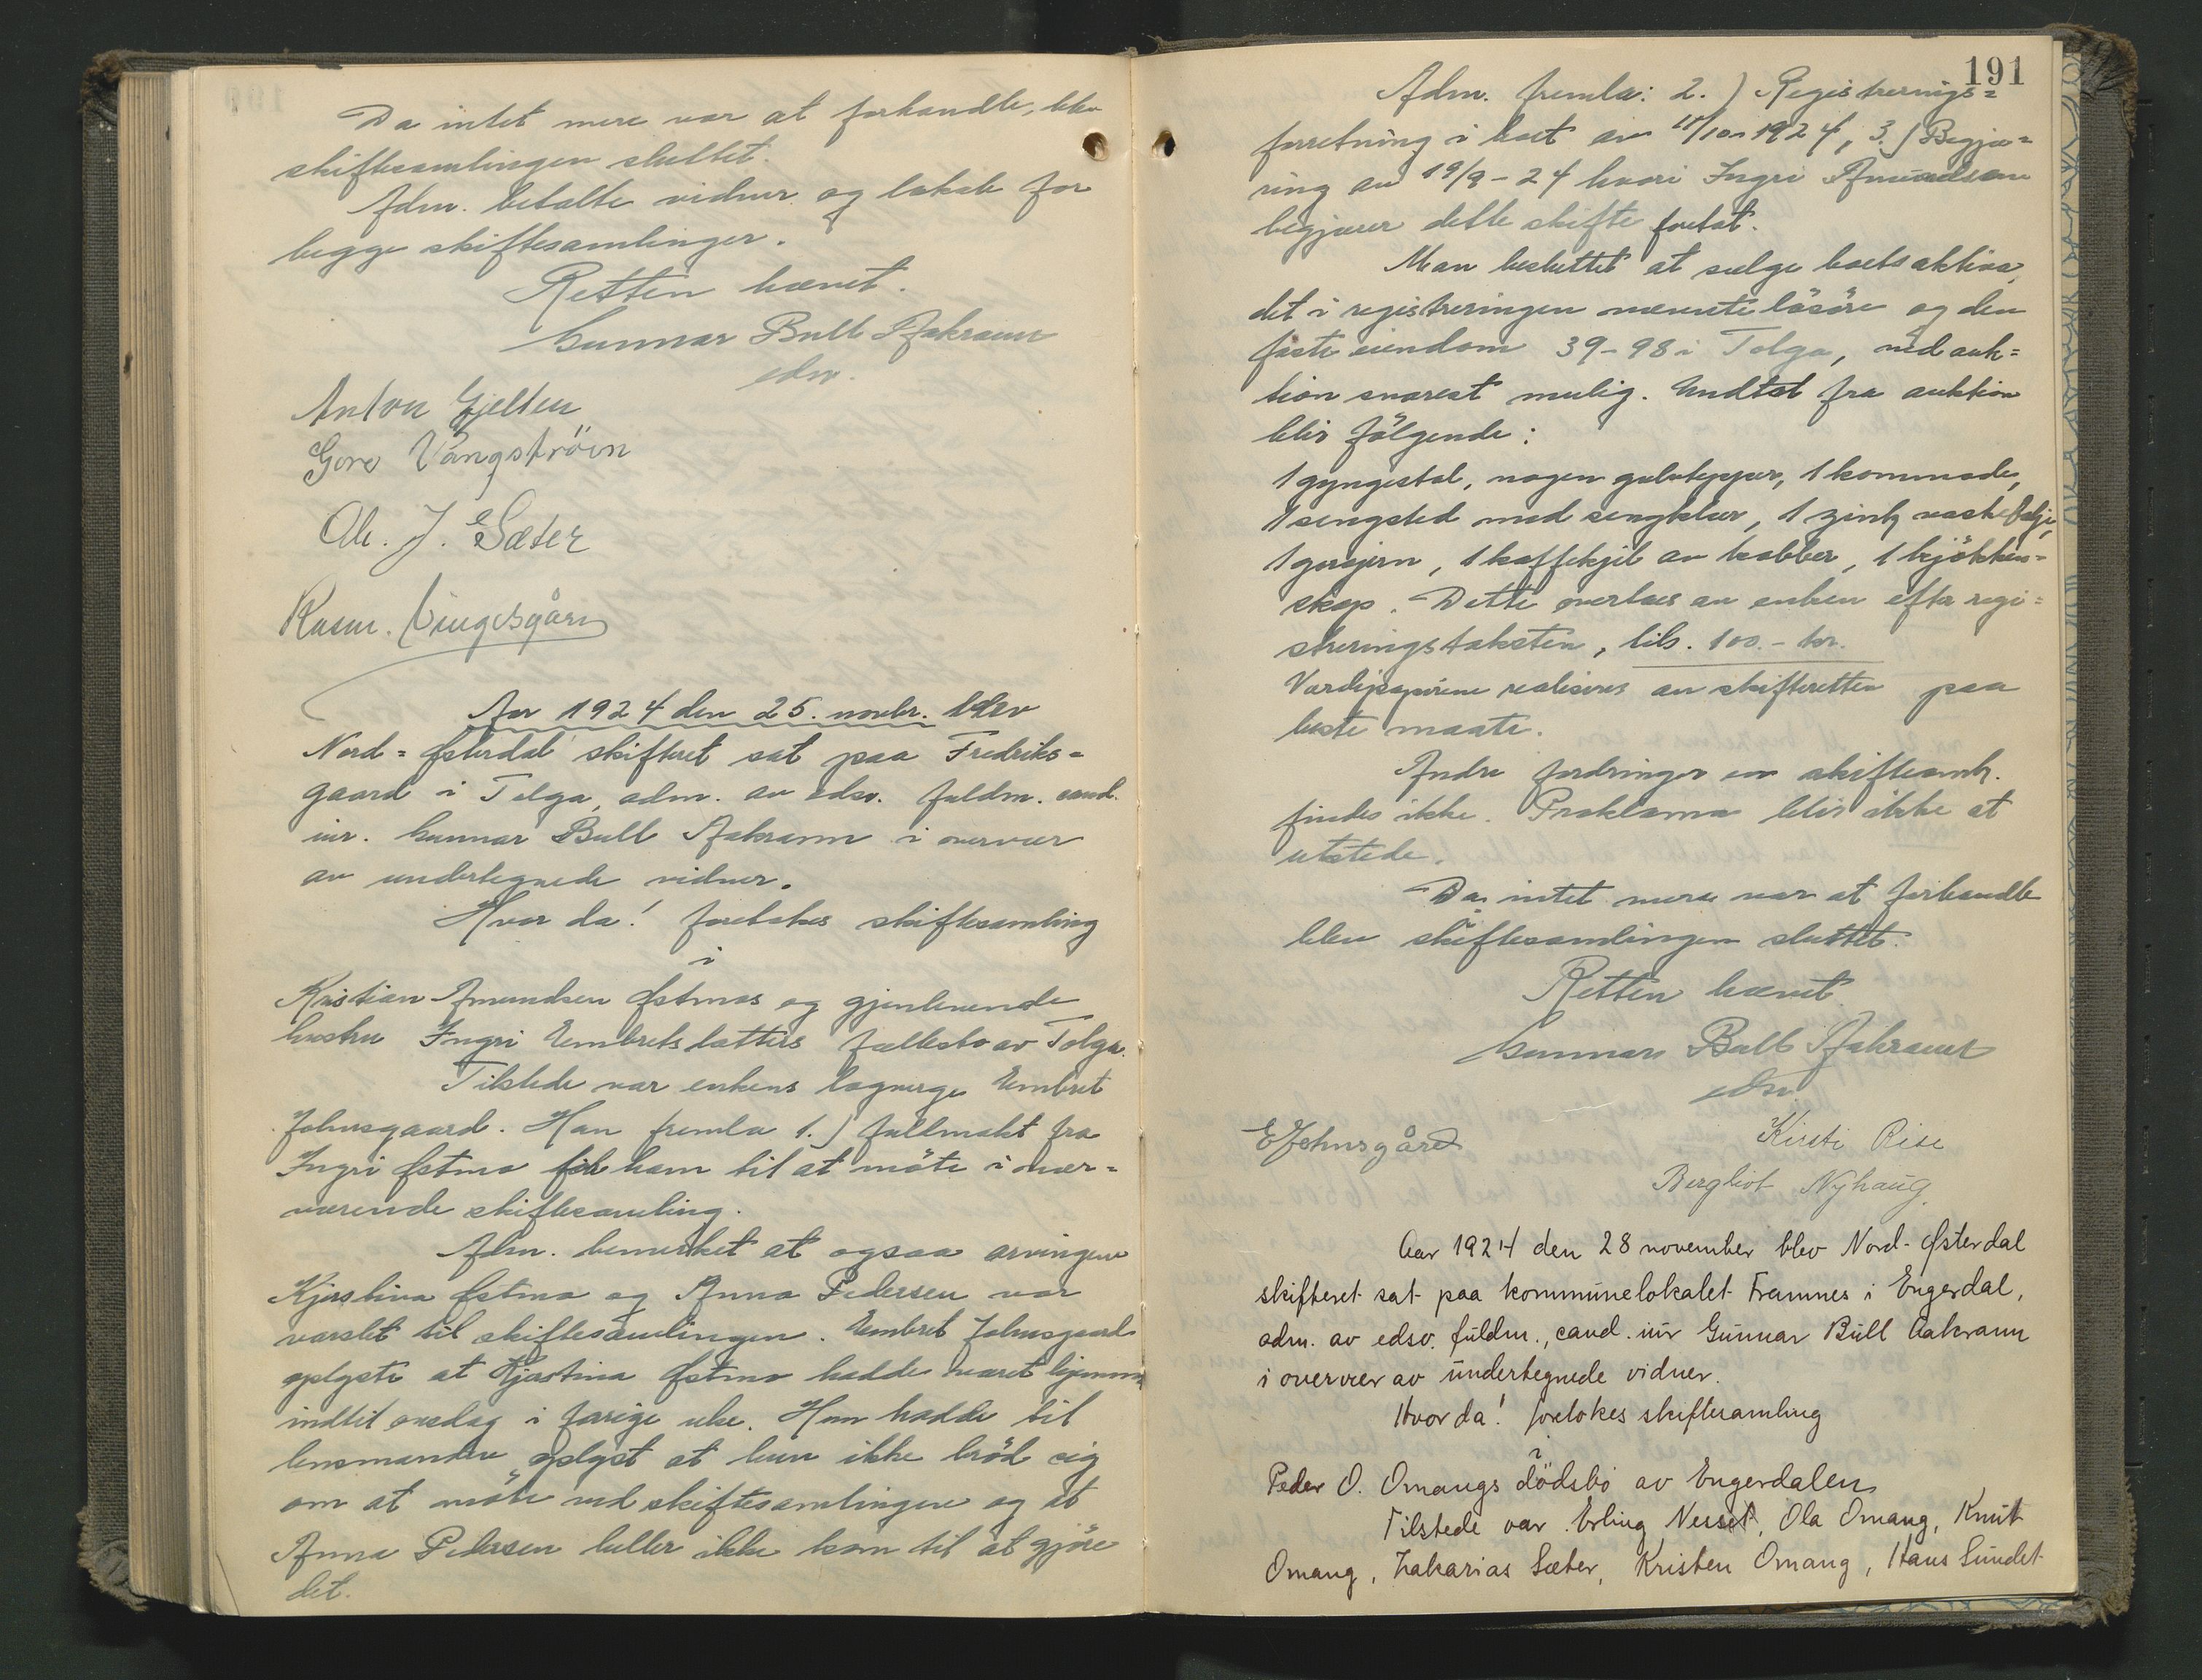 Da intet mere var at forhandle, blev
skiftesamlingen sluttet.
Adm. betalte vidner og lokale for
begge skiftesamlinger.
Retten hævet.
Gunnar Bull Aakrann
edsv.
Anton Gjelten
Gore Vangstrøen
Ole. J. Sæter
Rasm. Vingesgåm
Aar 1924 den 25. novbr. blev
Nord=Østerdal skifteret sat paa Fredriks=
gaard i Tolga, adm. av edsv. fuldm. cand.
iur. Gunnar Bull Aakrann i overvær
av undertegnede vidner.
Hvor da! foretokes skiftesamling
i
Kristian Amundsen Østmos og gjenlevende
hustru Ingri Embretsdatters fællesbo av Tolga.
Tilstede var enkens lagverge Embret
Johnsgaard. Han fremla 1.) fullmakt fra
Ingri Østmo for ham til at møte i nær=
værende skiftesamling.
Adm. bemerket at ogsaa arvingene
Kjerstina Østmo og Anna Pedersen var
varslet til skiftesamlingen. Embret Johnsgaard
oplyste at Kjerstina Østmo hadde været hjemme
indtil onsdag i forrige uke. Hun hadde til
lensmanden oplyst at hun ikke brød sig
om at møte ved skiftesamlingen og at
Anna Pedersen heller ikke kom til at gjøre
det.
191
Adm. fremla: 2.) Registrerings=
forretning i boet av 11/10 1924, 3.) Begjæ=
ring av 19/9-24 hvori Ingri Amundsen
begjærer dette skifte foretat.
Man besluttet at sælge boets aktiva,
det i registreringen nævnte løsøre og den
faste eiendom 39-98 i Tolga, ved auk=
tion snarest mulig. Undtat fra auktion
blir følgende:
1 gyngestol, nogen gulvtepper, 1 kommode,
1 sengsted med sengklær, 1 zink vaskebalje,
1 gorojern, 1 kaffekjel av kobber, 1 kjøkken=
skap. Dette overtaes av enken efter regi=
streringstaksten, tils. 100.- kr.
Værdipapirene realiseres av skifteretten paa
beste maate.
Andre fordringer en skifteomk.
findes ikke. Proklama blir ikke at
utstede.
Da intet mere var at forhandle
blev skiftesamlingen sluttet.
Retten hævet.
Gunnar Bull Aakrann
edsv.
E Johnsgård
Kirsti Rise
Bergliot Nyhaug.
Aar 1924 den 28 november blev Nord-Østerdal
skifteret sat paa kommunelokalet Framnes i Engerdal,
adm. av edsv. fuldm., cand. iur Gunnar Bull Aakrann
i overvær av undertegnede vidner.
Hvor da! foretokes skiftesamling
i
Peder O. Omangs dödsbo av Engerdalen
Tilstede var Erling Nesset, Ola Omang, Knut
Omang, Zakarias Sæter, Kristen Omang, Hans Sundet